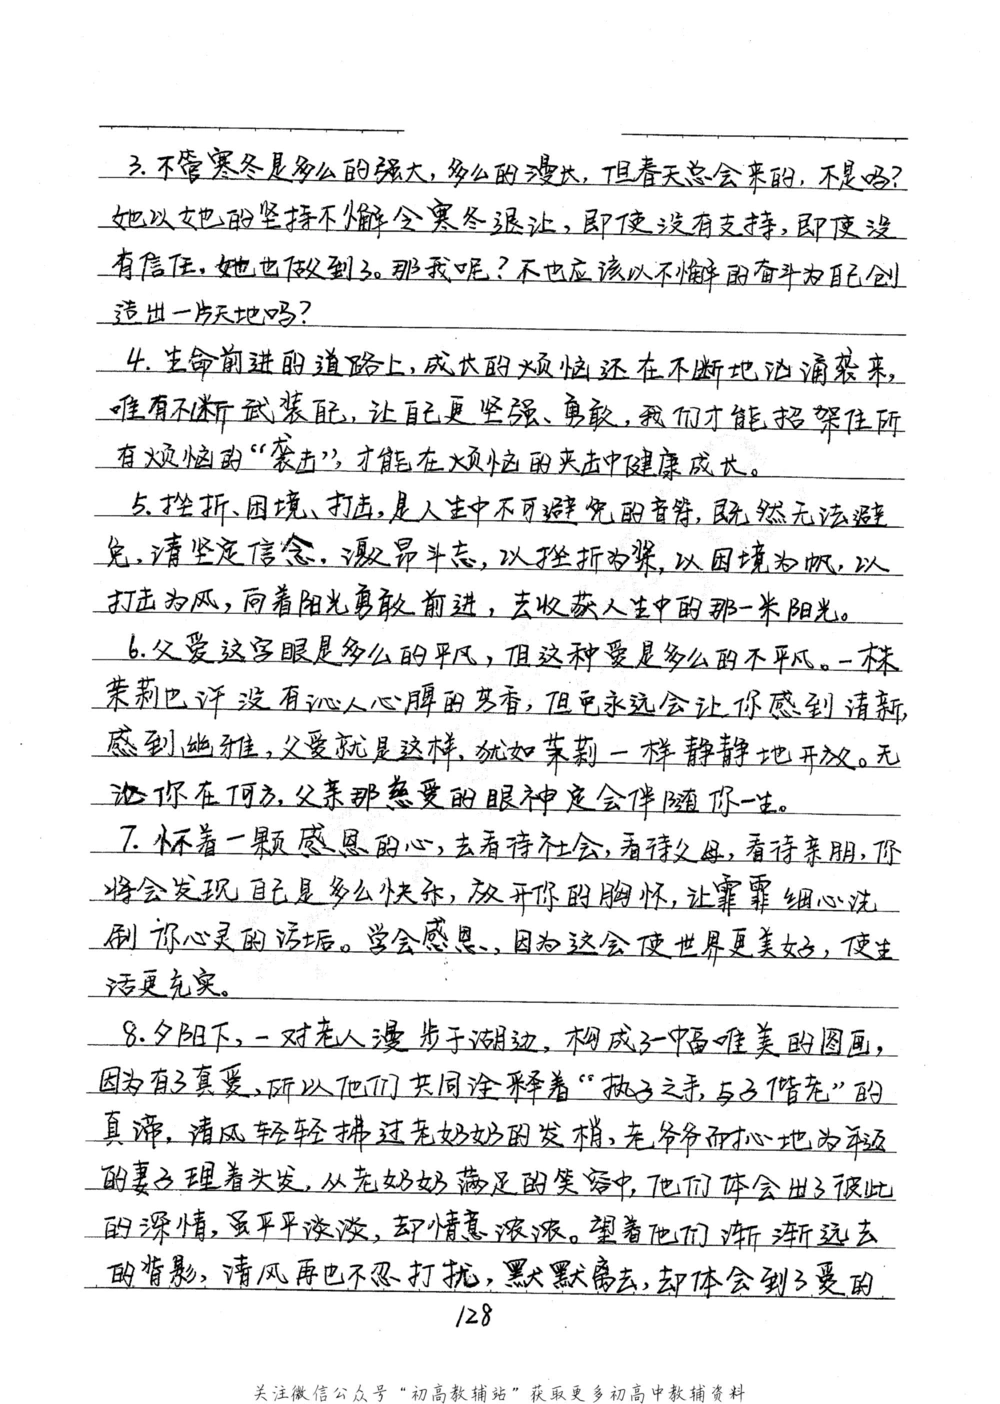 3.不管寒冬是多么的强大,多么的漫长,但春天总会来的,不是吗?
她以她的坚持不懈令寒冬退让,即使没有支持,即使没
有信任,她也做到了。那我呢?不也应该以不懈的奋斗为自己创
造出一片天地吗?
4.生命前进的道路上,成长的烦恼还在不断地汹涌袭来,
唯有不断武装自己,让自己更坚强、勇敢,我们才能招架住所
有烦恼的“袭击”,才能在烦恼的夹击中健康成长。
5.挫折、困境、打击,是人生中不可避免的音符,既然无法避
免,请坚定信念,激昂斗志,以挫折为桨,以困境为帆,以
打击为风,向着阳光勇敢前进,去收获人生中的那一米阳光。
6.父爱这字眼是多么的平凡,但这种爱是多么的不平凡。一株
茉莉也许没有沁人心脾的芳香,但它永远会让你感到清新,
感到幽雅,父爱就是这样,犹如茉莉一样静静地开放。无
论你在何方,父亲那慈爱的眼神定会伴随你一生。
7.怀着一颗感恩的心,去看待社会,看待父母,看待亲朋,你
将会发现自己是多么快乐,放开你的胸怀,让霏霏细心洗
刷你心灵的污垢。学会感恩,因为这会使世界更美好,使生
活更充实。
8.夕阳下,一对老人漫步于湖边,构成了一幅唯美的图画,
因为有了真爱,所以他们共同诠释着“执子之手,与子偕老”的
真谛,清风轻轻拂过老奶奶的发梢,老爷爷耐心地为年迈
的妻子理着头发,从老奶奶满足的笑容中,他们体会出了彼此
的深情,虽平平淡淡,却情意浓浓。望着他们渐渐远去
的背影,清风再也不忍打扰,默默离去,却体会到了爱的
128
关注微信公众号“初高教辅站”获取更多初高中教辅资料